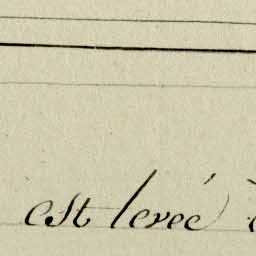 est levée